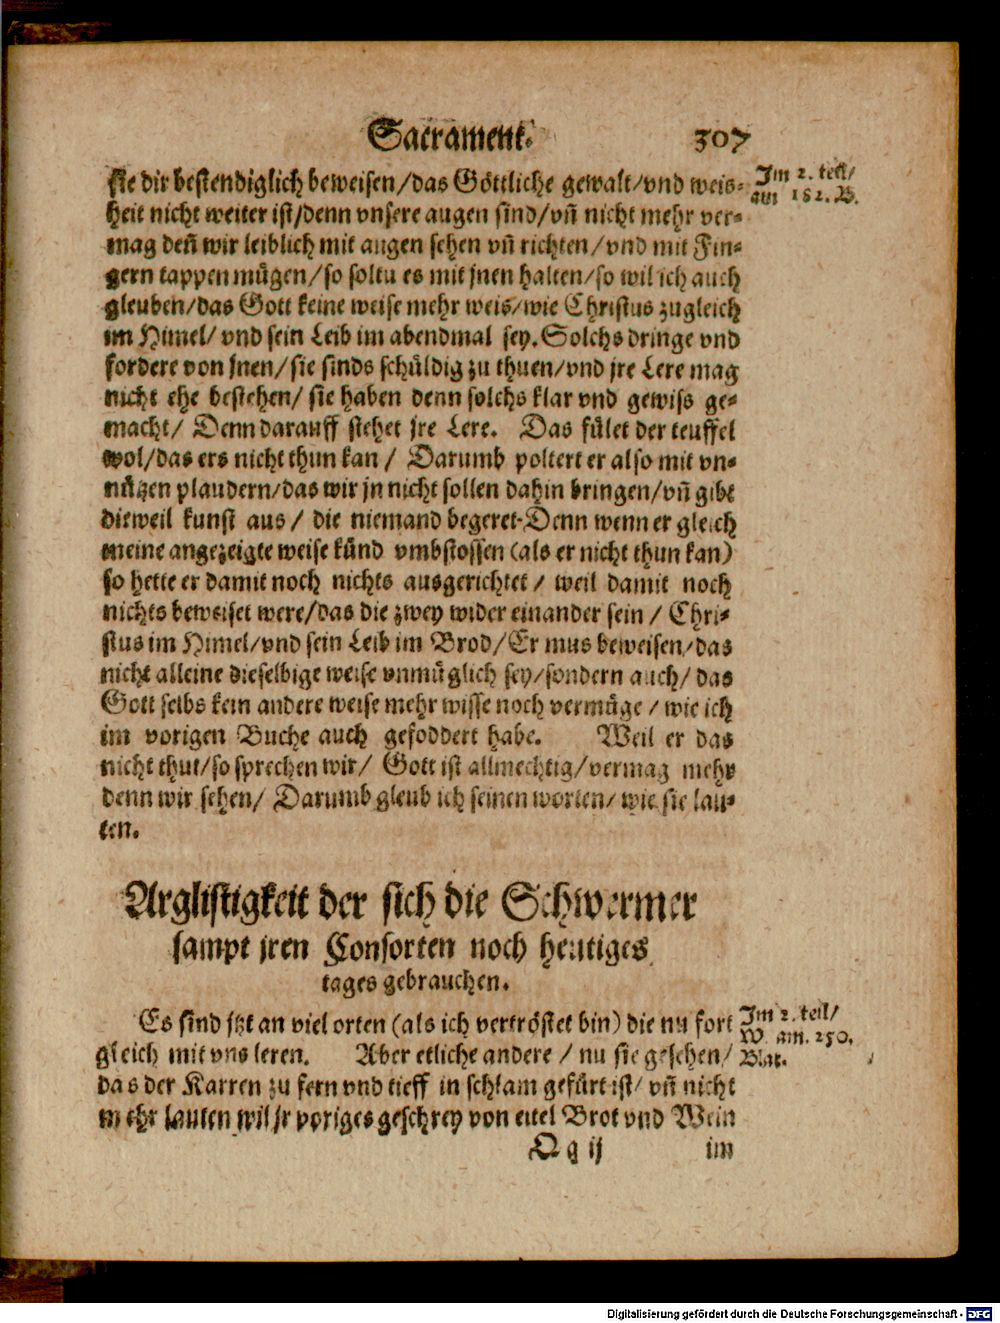 Sacrament. 307
sie dir bestendiglich beweisen/das Göttliche gewalt/vnd weis-
Im 2. teil/
am 182. B.
heit nicht weiter ist/denn vnsere augen sind/vñ nicht mehr ver-
mag deñ wir leiblich mit augen sehen vñ richten/vnd mit Fin-
gern tappen mügen/so soltu es mit jnen halten/so wil ich auch
gleuben/das Gott keine weise mehr weis/wie Christus zugleich
im Himel/vnd sein Leib im abendmal sey. Solchs dringe vnd
fordere von jnen/sie sinds schüldig zu thuen/vnd jre Lere mag
nicht ehe bestehen/ sie haben denn solchs klar vnd gewiss ge-
macht/ Denn darauff stehet jre Lere. Das fület der teuffel
wol/das ers nicht thun kan / Darumb poltert er also mit vn-
nützen plaudern/das wir jn nicht sollen dahin bringen/vñ gibt
dieweil kunst aus / die niemand begeret. Denn wenn er gleich
meine angezeigte weise künd vmbstossen (als er nicht thun kan)
so hette er damit noch nichts ausgerichtet / weil damit noch
nichts beweiset were/das die zwey wider einander sein / Chri-
stus im Himel/vnd sein Leib im Brod/Er mus beweisen/das
nicht alleine dieselbige weise vnmüglich sey/sondern auch/das
Gott selbs kein andere weise mehr wisse noch vermüge / wie ich
im vorigen Buche auch gefoddert habe. Weil er das
nicht thut/so sprechen wir/ Gott ist allmechtig/vermag mehr
denn wir sehen/ Darumb gleub ich seinen worten/ wie sie lau-
ten.
Arglistigkeit der sich die Schwermer
sampt jren Consorten noch heutiges
tages gebrauchen.
Es sind jtzt an viel orten (als ich vertröstet bin) die nu fort
Im 2. teil/
W. am. 250.
Blat.
gleich mit vns leren. Aber etliche andere / nu sie gesehen/
das der Karren zu fern vnd tieff in schlam gefürt ist/ vñ nicht
mehr lauten wil jr voriges geschrey von eitel Brot vnd Wein
Qq ij im
Digitalisierung gefördert durch die Deutsche Forschungsgemeinschaft - DFG